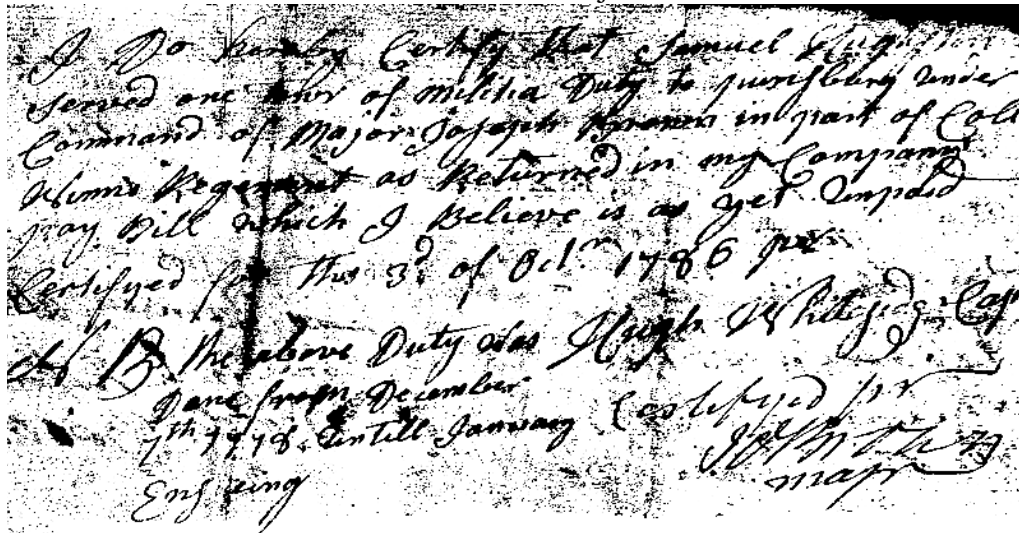 I Do hereby Certify that Samuel
served one tour of militia Duty to purisburg under
Command of Major Joseph Brown in part of Coll
Winns Regement as Returned in my Company
pay Bill which I Believe is as yet Unpaid
Certifyed this 3d of Octr 1786 pr
N B the above Duty was Hugh Whiteside Cap
Done from December
7th 1778 Untill January Certifyed pr
Ensueing
majr